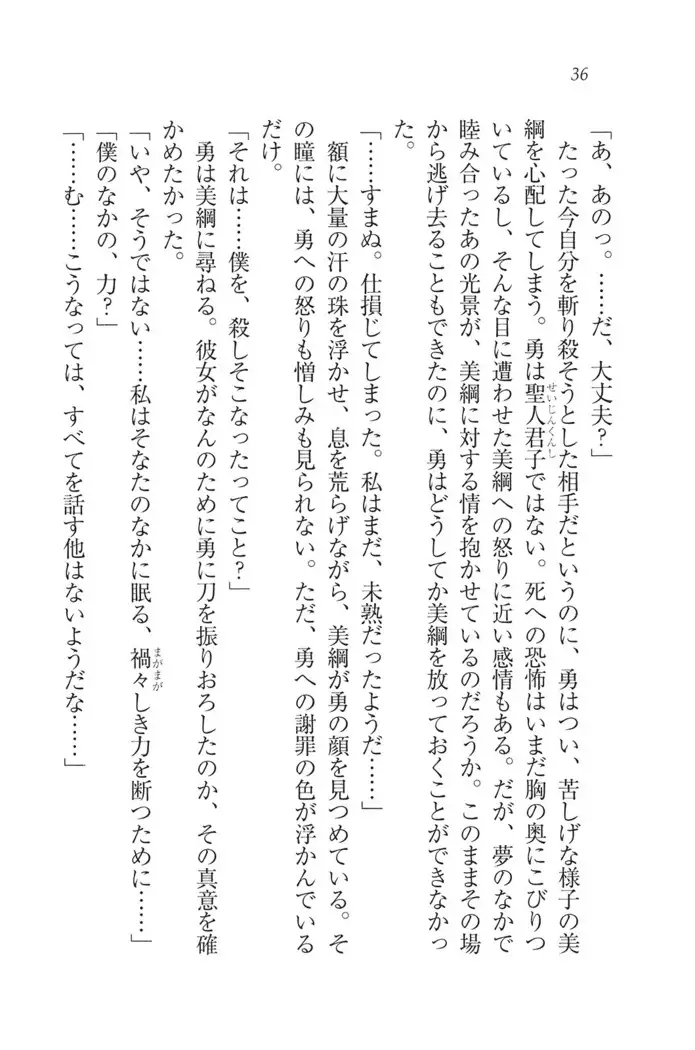 36
「あ、あのっ。……だ、大丈夫？」
たった今自分を斬り殺そうとした相手だというのに、勇はつい、苦しげな様子の美
綱を心配してしまう。勇は聖人君子ではない。死への恐怖はいまだ胸の奥にこびりつ
せいじんくんし
いているし、そんな目に遭わせた美綱への怒りに近い感情もある。だが、夢のなかで
睦み合ったあの光景が、美綱に対する情を抱かせているのだろうか。このままその場
から逃げ去ることもできたのに、勇はどうしてか美綱を放っておくことができなかっ
た。
「……すまぬ。仕損じてしまった。私はまだ、未熟だったようだ……」
額に大量の汗の珠を浮かせ、息を荒らげながら、美綱が勇の顔を見つめている。そ
の瞳には、勇への怒りも憎しみも見られない。ただ、勇への謝罪の色が浮かんでいる
だけ。
「それは……僕を、殺しそこなったってこと？」
勇は美綱に尋ねる。彼女がなんのために勇に刀を振りおろしたのか、その真意を確
かめたかった。
「いや、そうではない……私はそなたのなかに眠る、禍々しき力を断つために……」
まがまが
「僕のなかの、力？」
「……む……こうなっては、すべてを話す他はないようだな……」